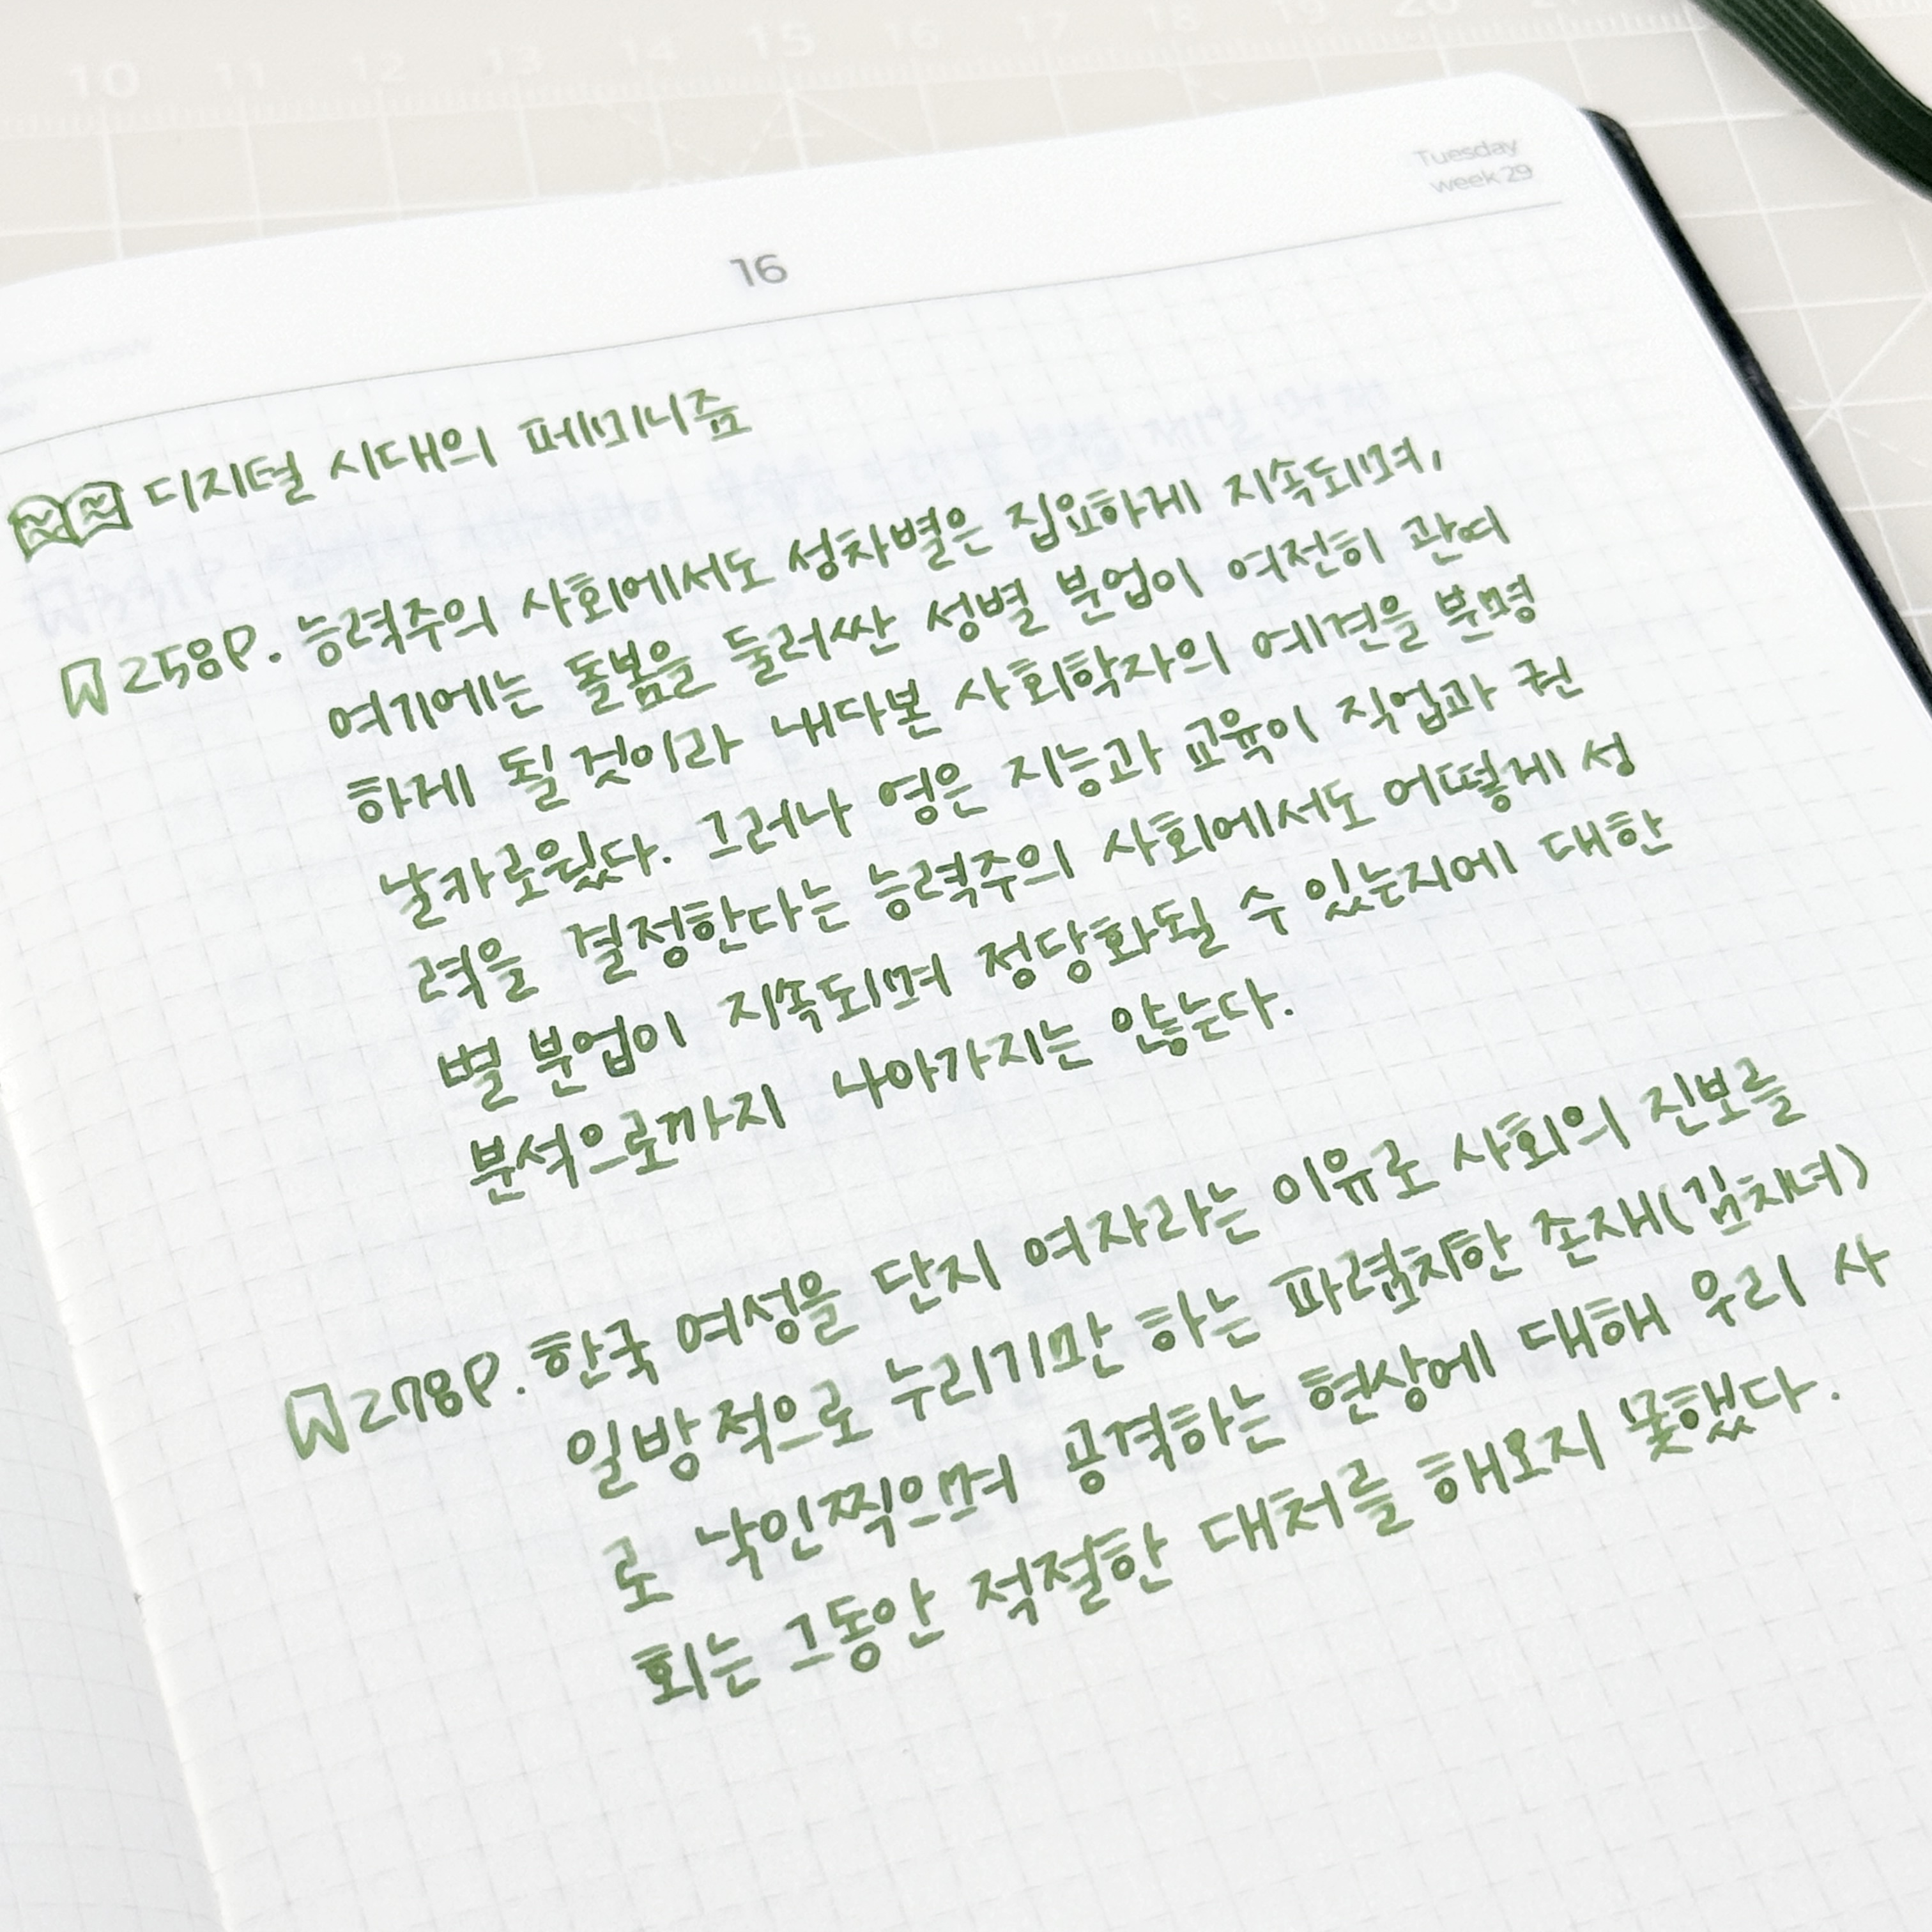 10 11 12 13 14 15 16 17 18 19 20
Tuesday
week 29
16
디지털 시대의 페미니즘
258P. 능력주의 사회에서도 성차별은 집요하게 지속되며,
여기에는 돌봄을 둘러싼 성별 분업이 여전히 관여
하게 될 것이라 내다본 사회학자의 예견을 분명
날카로웠다. 그러나 영은 지능과 교육이 직업과 권
력을 결정한다는 능력주의 사회에서도 어떻게 성
별 분업이 지속되며 정당화될 수 있는지에 대한
분석으로까지 나아가지는 않는다.
278P. 한국 여성을 단지 여자라는 이유로 사회의 진보를
일방적으로 누리기만 하는 파렴치한 존재(김치녀)
로 낙인찍으며 공격하는 현상에 대해 우리 사
회는 그동안 적절한 대처를 해오지 못했다.